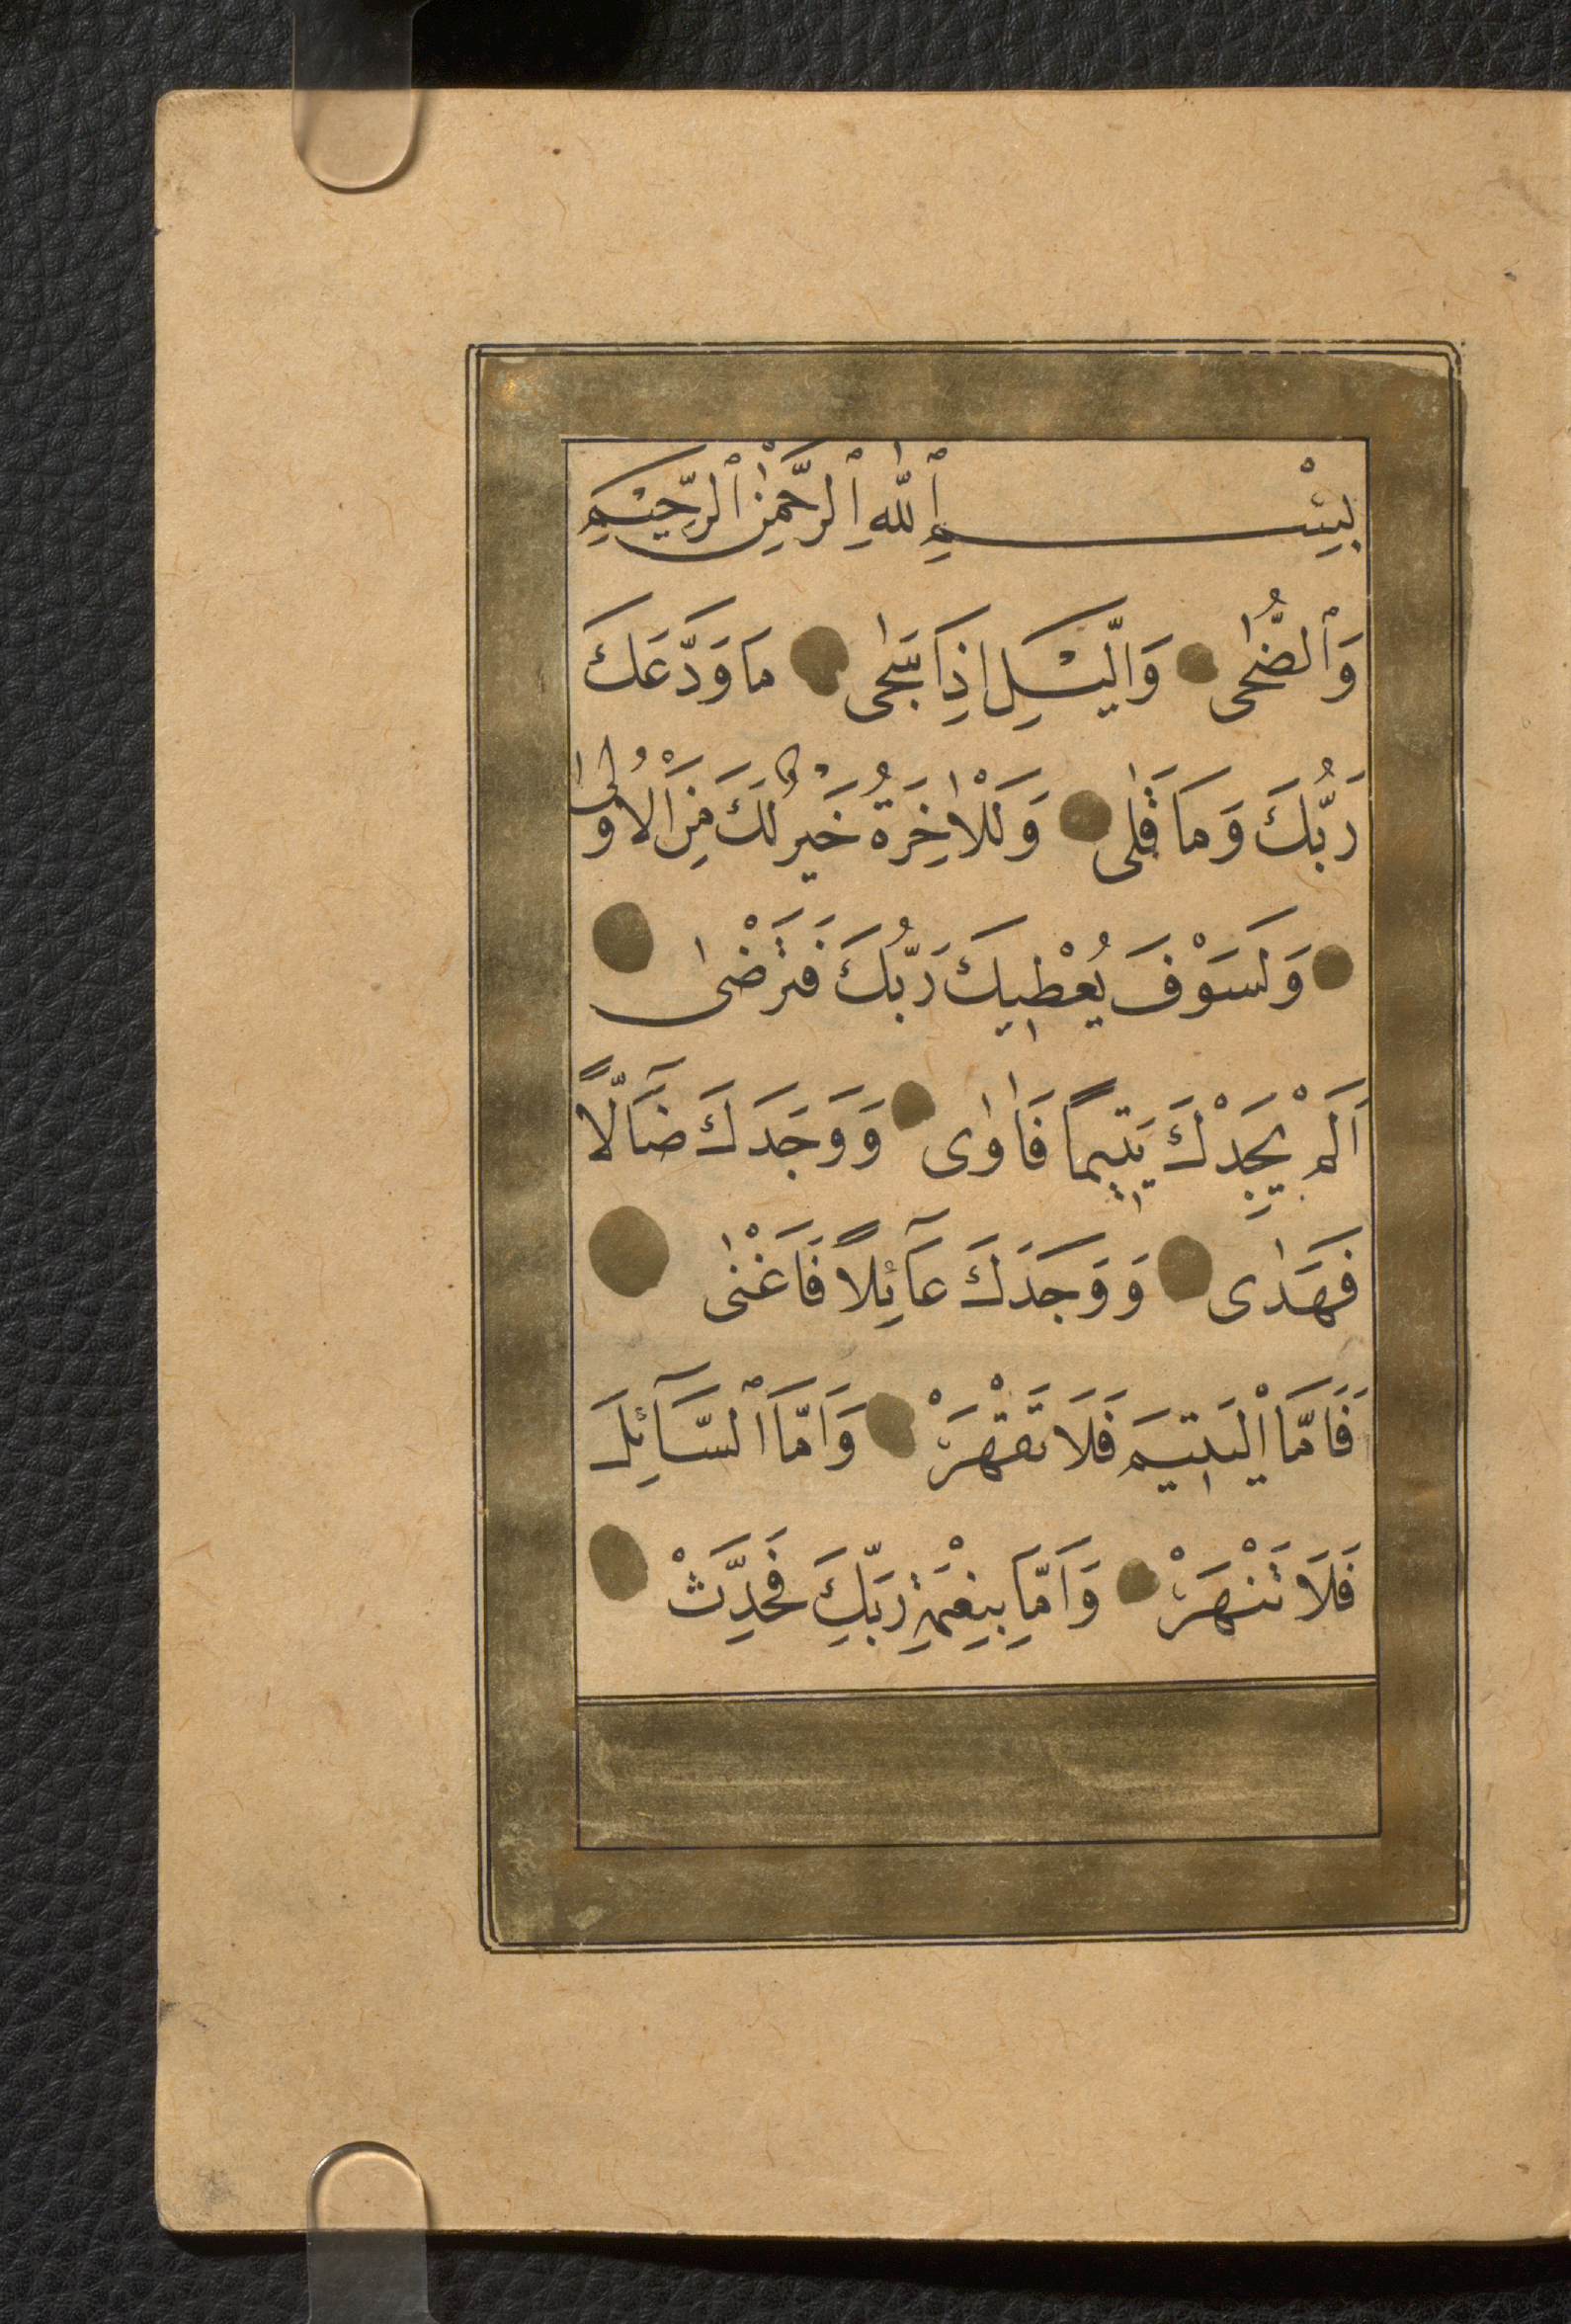 بِسْمِ ٱللّٰهِ ٱلرَّحْمٰنِ ٱلرَّحِيْمِ
وَٱلضُّحٰى وَالَّيْلِ اِذَا سَجٰى مَا وَدَّعَكَ
رَبُّكَ وَمَا قَلٰى وَلَلْاٰخِرَةُ خَيْرٌ لَكَ مِنَ الْاُولٰى
وَلَسَوْفَ يُعْطِيكَ رَبُّكَ فَتَرْضٰى
اَلَمْ يَجِدْكَ يَتِيمًا فَاٰوٰى وَوَجَدَكَ ضَآلًّا
فَهَدٰى وَوَجَدَكَ عَآئِلًا فَاَغْنٰى
فَاَمَّا الْيَتِيمَ فَلَا تَقْهَرْ وَاَمَّا ٱلسَّآئِلَ
فَلَا تَنْهَرْ وَاَمَّا بِنِعْمَةِ رَبِّكَ فَحَدِّثْ